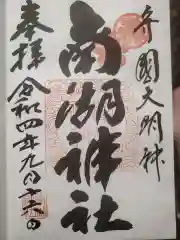 弁圀大明神
南湖神社
奉拝
令和四年九月十六日